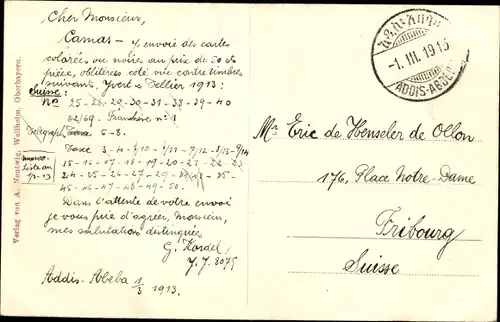 Cher Monsieur,
Camas - J'envoie des cartes
colorées ou noires au prix de 50 cts
pièce, oblitérés coté vue contre timbres
suivants, Yvert & Tellier 1913:
Suisse:
Nos 25-26-29-30-31-38-39-40
62/69. Franchise No 1
Télégraph 5-8.
Taxe 3-4-8/10
15-16-17-18-19-20-21-22-23
24-25-26-27-29
45-46-47-48-49-50.
Liste
Dans l'attente de votre envoi
je vous prie d'agréer, Monsieur,
mes salutations distinguées
G. Kordel
Y. J. 8075
Addis-Abeba 1/3 1913.
Verlag von A. Nentwig, Weilheim, Oberbayern.
-1. III. 1913
ADDIS-ABEBA
Mr Eric de Henseler de Ollon
176, Place Notre-Dame
Fribourg
Suisse